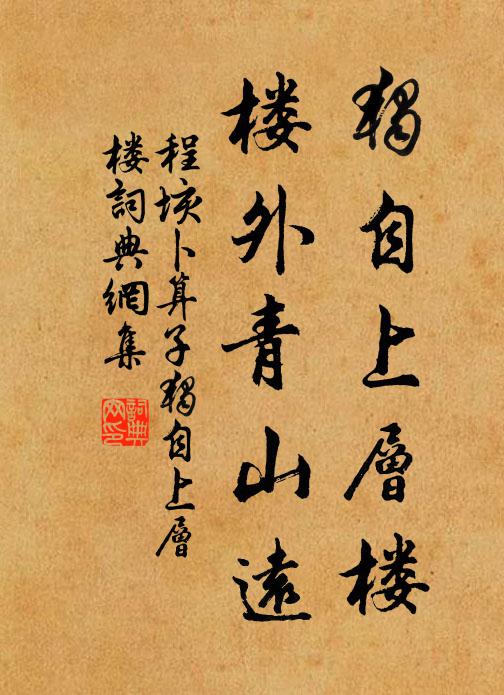 獨自上層楼
楼外青山遠
程垓卜算子獨自上層
楼詞典網集
詞典
网印